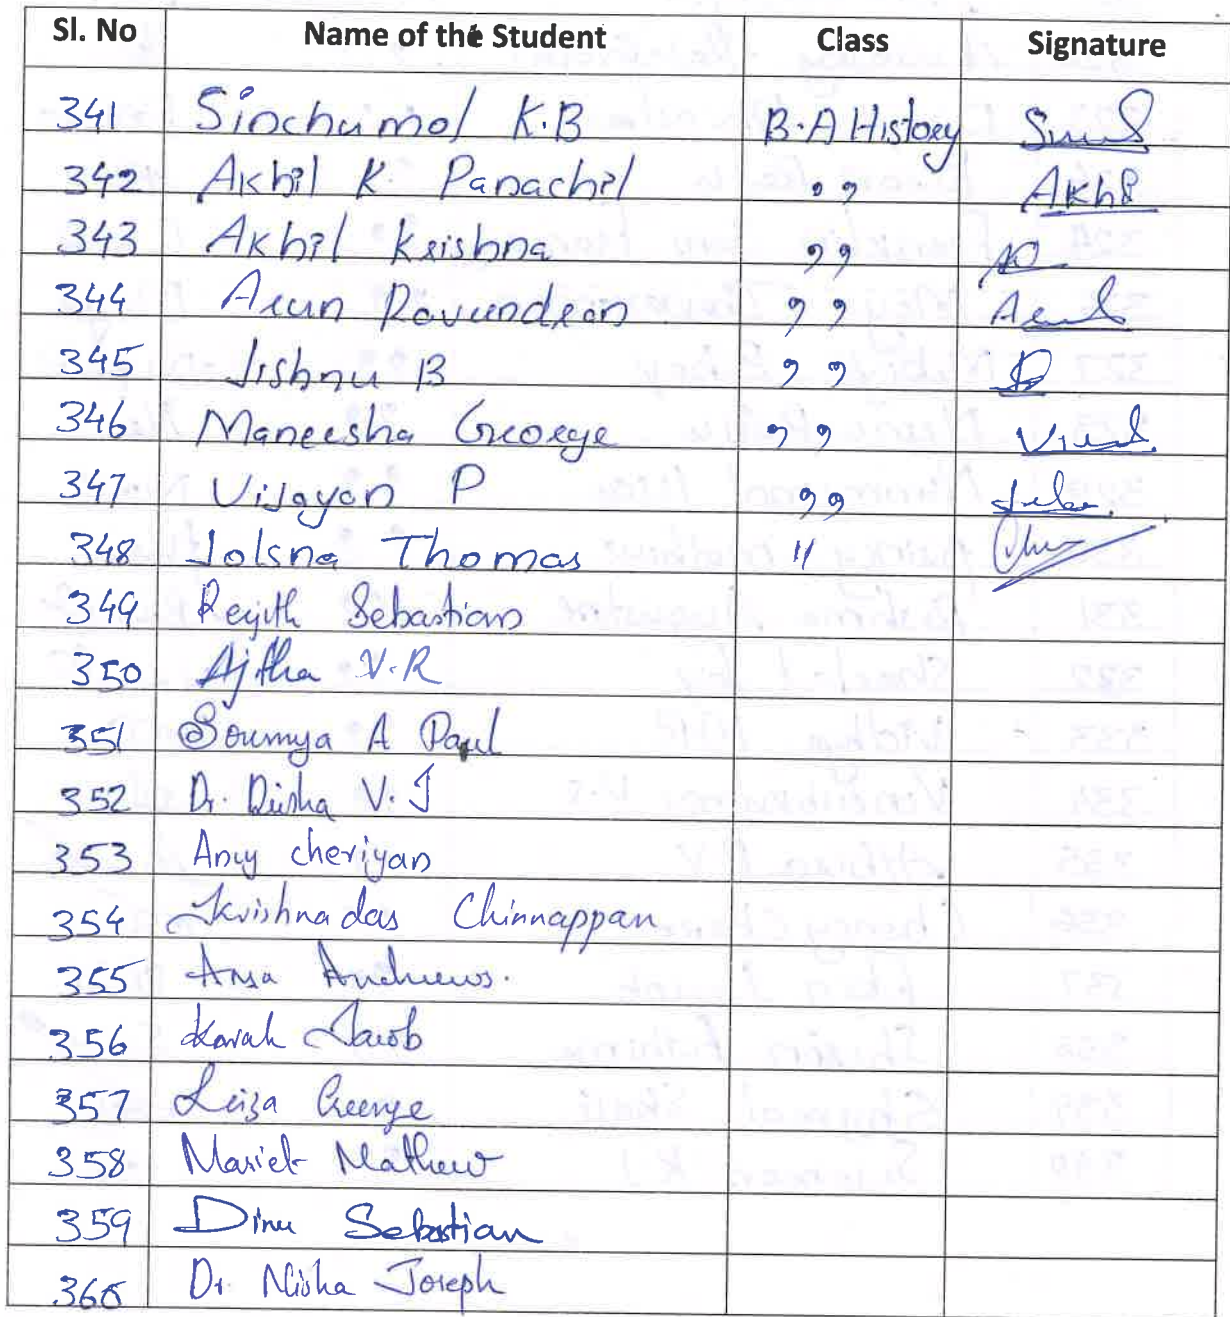 Sl. No Name of the Student Class Signature
341 Sinchumol K.B B.A History
342 Akhil K. Panachil ,, Akhil
343 Akhil Krishna ,,
344 Arun Ravundran ,,
345 Jishnu B ,,
346 Maneesha George ,,
347 Vijayan P ,,
348 Jolsna Thomas "
349 Rejith Sebastian
350 Ajitha V.R
351 Soumya A Paul
352 Dr. V. J
353 Ancy cheriyan
354 Krishnadas Chinnappan
355 Ansa Andrews.
356 Jacob
357 Leiza George
358 Mariet Mathew
359 Dinu Sebastian
360 Dr. Nisha Joseph